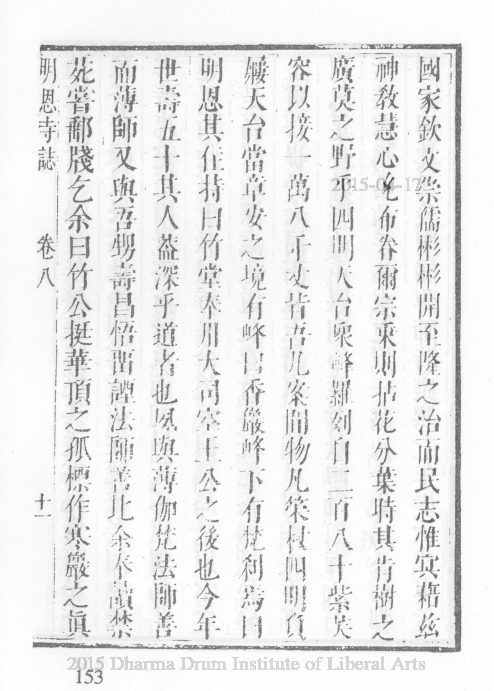 國家欽文崇儒彬彬開至隆之治而民志惟冥藉茲
神教慧心允布眷爾宗乘則拈花分葉時其肯樹之
廣莫之野乎四明天台眾峰羅列自二百八十紫芙
容以接一萬八千丈皆吾几案間物凡筞杖四明負
屨天台當章安之境有峰曰香嚴峰下有梵利焉曰
明恩其住持曰竹堂奉川大司空王公之後也今年
世壽五十其人葢深乎道者也夙與薄伽梵法師善
而薄師又與吾甥壽昌悟畱譚法師善比余奉讀禁
苑嘗郵牋乞余曰竹公挺華頂之孤標作寒巖之真
明恩寺誌 卷八 十一
2015-04-17
2015 Dharma Drum Institute of Liberal Arts
153